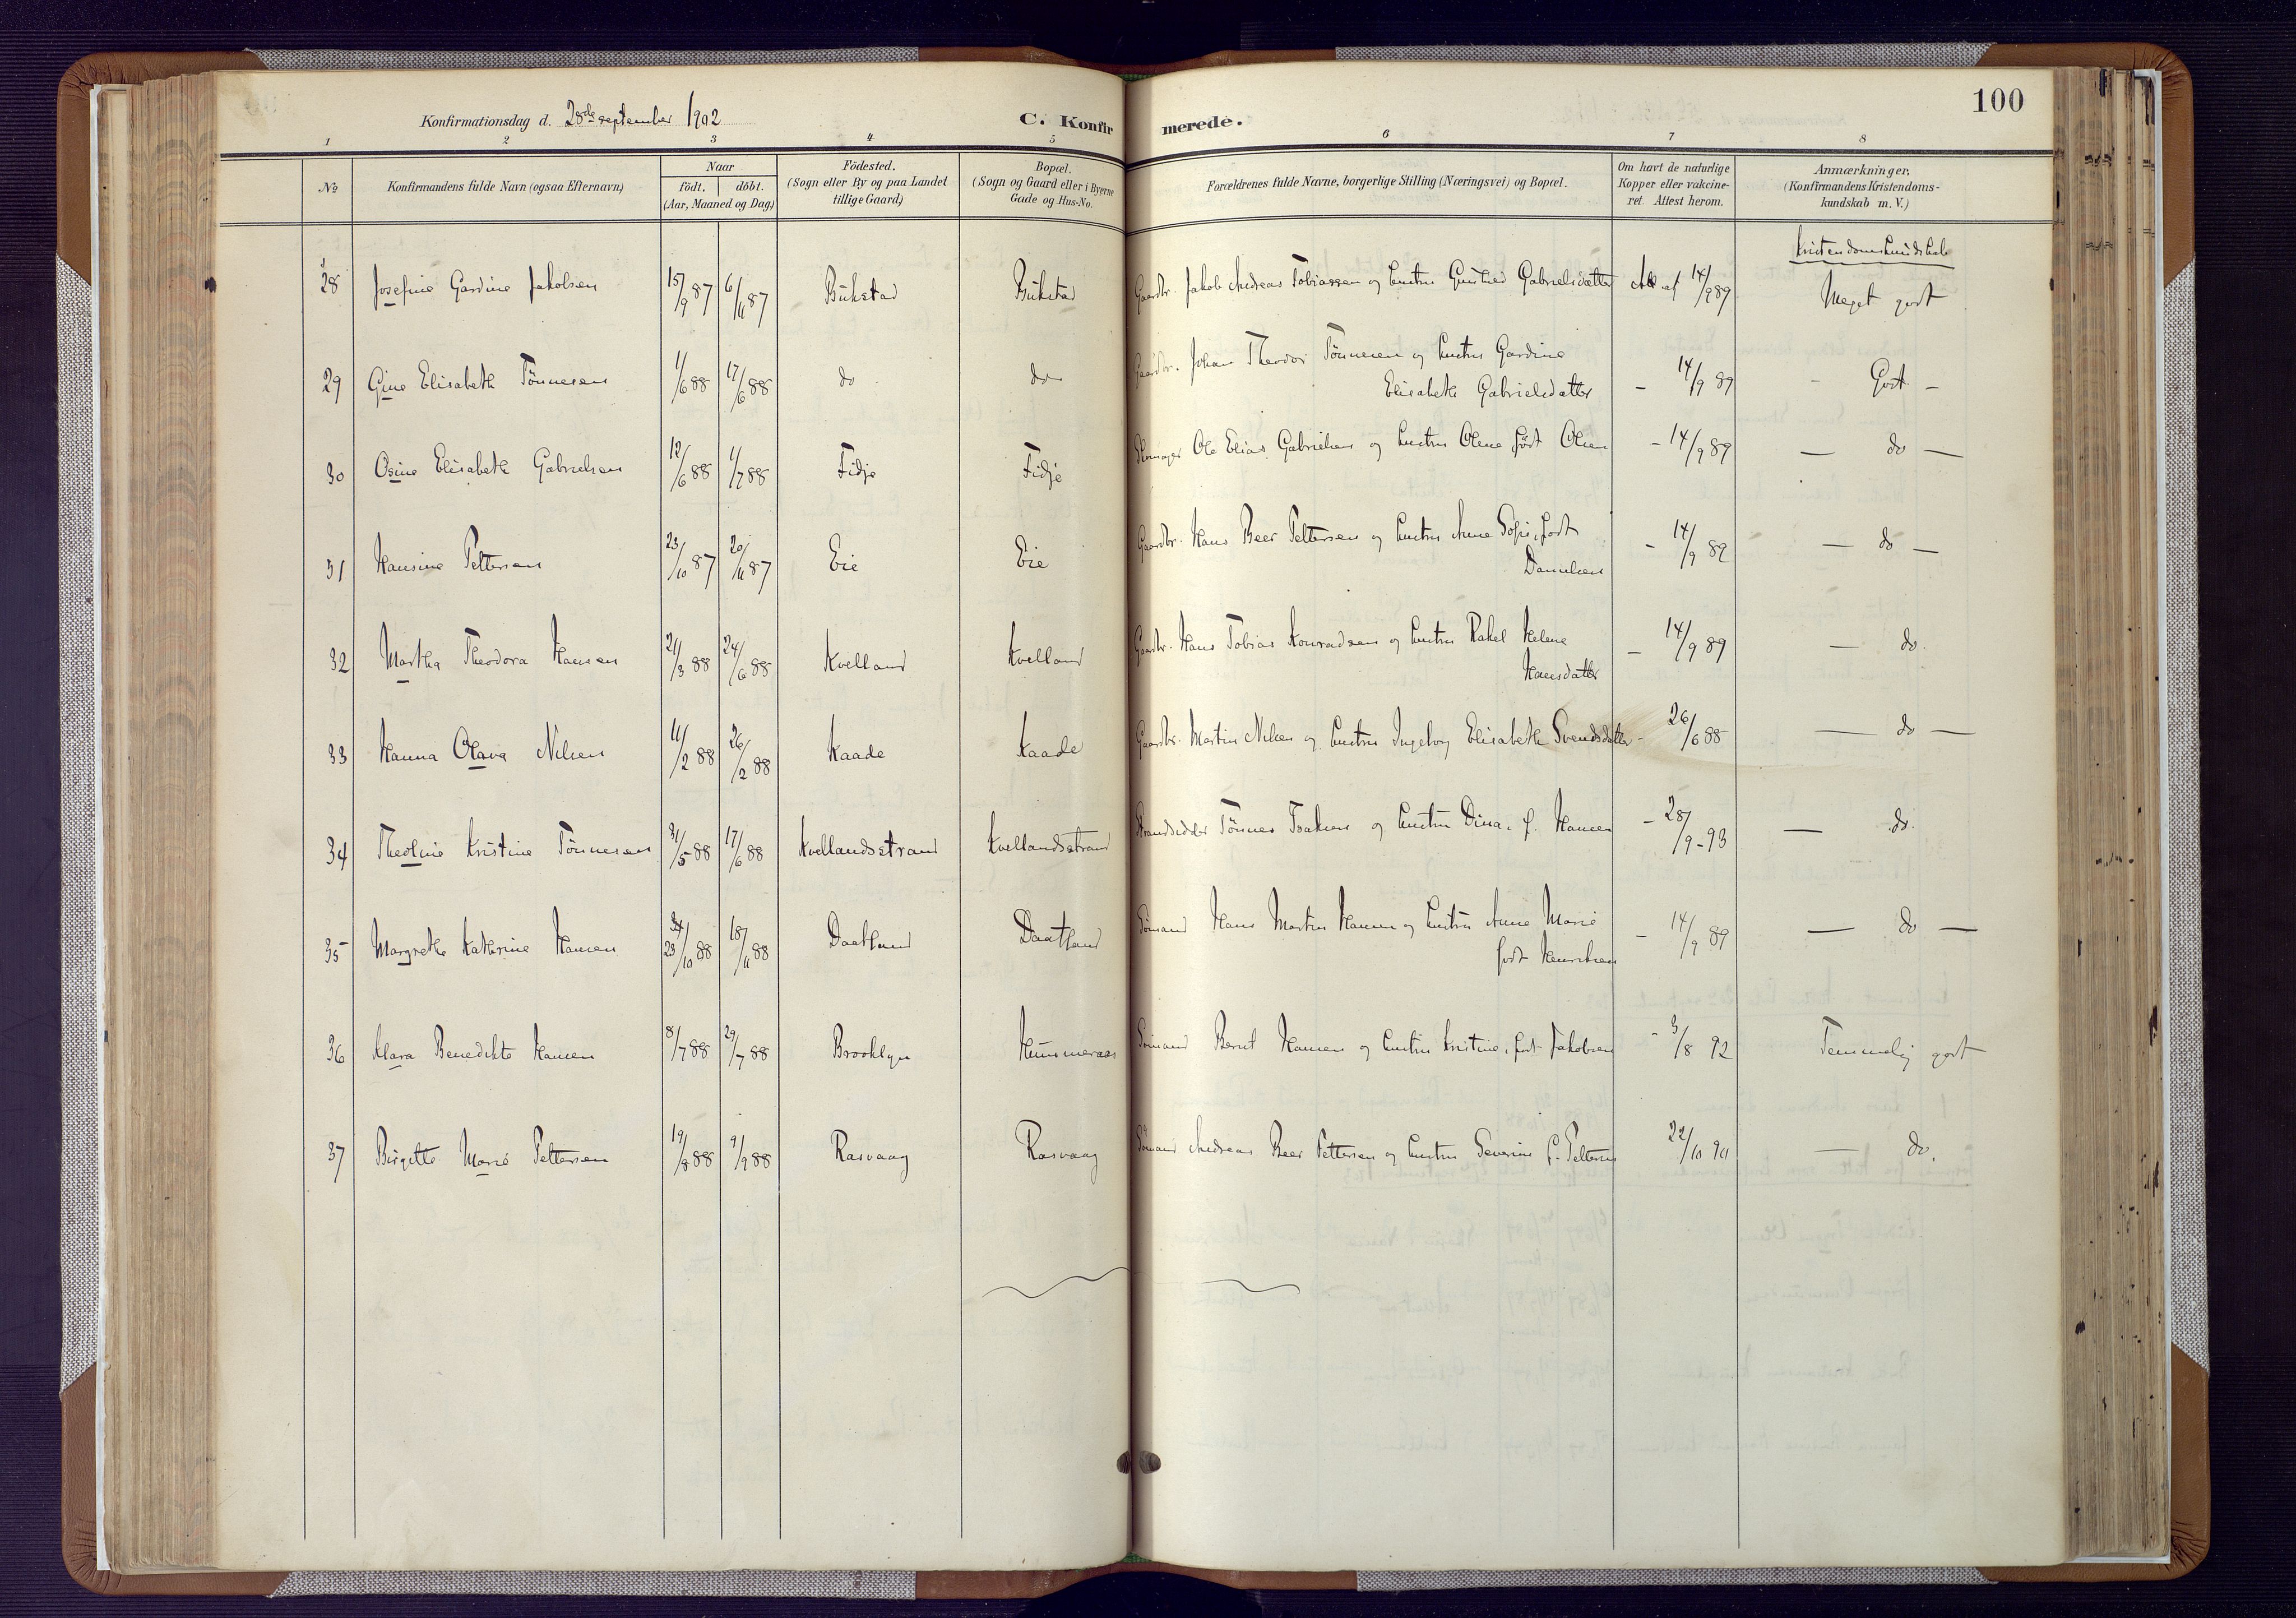 100
Konfirmationsdag d. 28de september 1902 C. Konfirmerede.
1 2 3 4 5 6 7 8
No Konfirmandens fulde Navn (ogsaa Efternavn) Naar født. døbt. (Aar, Maaned og Dag) Födested. (Sogn eller By og paa Landet tillige Gaard) Bopæl. (Sogn og Gaard eller i Byerne Gade og Hus-No. Forældrenes fulde Navne, borgerlige Stilling (Næringsvei) og Bopæl. Om havt de naturlige Kopper eller vakcineret. Attest herom. Anmærkninger. (Konfirmandens Kristendomskundskab m. V.)
Kristendomskundskab
28 Josefine Gardine Jakobsen 15/9 87 6/11 87 Bukstad Bukstad Gaardbr. Jakob Andreas Tobiassen og hustru Gunhild Gabrielsdatter Att. af 14/9 89 Meget godt
29 Gine Elisabeth Tönnesen 1/6 88 17/6 88 do do Gaardbr. Johan Theodor Tönnesen og hustru Gardine
Elisabeth Gabrielsdatter - 14/9 89 - Godt -
30 Osine Elisabeth Gabrielsen 12/6 88 1/7 88 Fidje Fidje Ole Elias Gabrielsen og hustru Olene född Olsen - 14/9 89 - do -
31 Hansine Pettersen 23/10 87 20/11 87 Eie Eie Gaardbr. Hans Beer Pettersen og hustru Anne Sofie, født
Danielsen - 14/9 89 - do -
32 Martha Theodora Hansen 21/3 88 24/6 88 Kvelland Kvelland Gaardbr. Hans Tobias Konradsen og hustru Rakel Helene
Hansdatter - 14/9 89 - do.
33 Hanna Olava Nilsen 11/2 88 26/2 88 Kaade Kaade Gaardbr. Martin Nilsen og hustru Ingeborg Elisabeth Svendsdatter - 26/6 88 - do -
34 Theoline Kristine Tönnesen 31/5 88 17/6 88 Kvellandsstrand Kvellandsstrand Strandsidder Tönnes Isaksen og hustru Dina, f. Hansen - 28/9-93 - do.
35 Margrethe Kathrine Hansen 23/10 88 18/11 88 Daatland Daatland Sömand Hans Martin Hansen og hustru Anne Marie
født Henriksen - 14/9 89 - do -
36 Klara Benedikte Hansen 8/7 88 29/7 88 Brooklyn Hummeraas Sömand Bernt Hansen og hustru Kristine, født Jakobsen - 3/8 92 Temmelig godt
37 Birgitte Marie Pettersen 19/8 88 9/9 88 Rasvaag Rasvaag Sömand Andreas Beer Pettersen og hustru Severine f. Pettersen 22/10 90 - do.